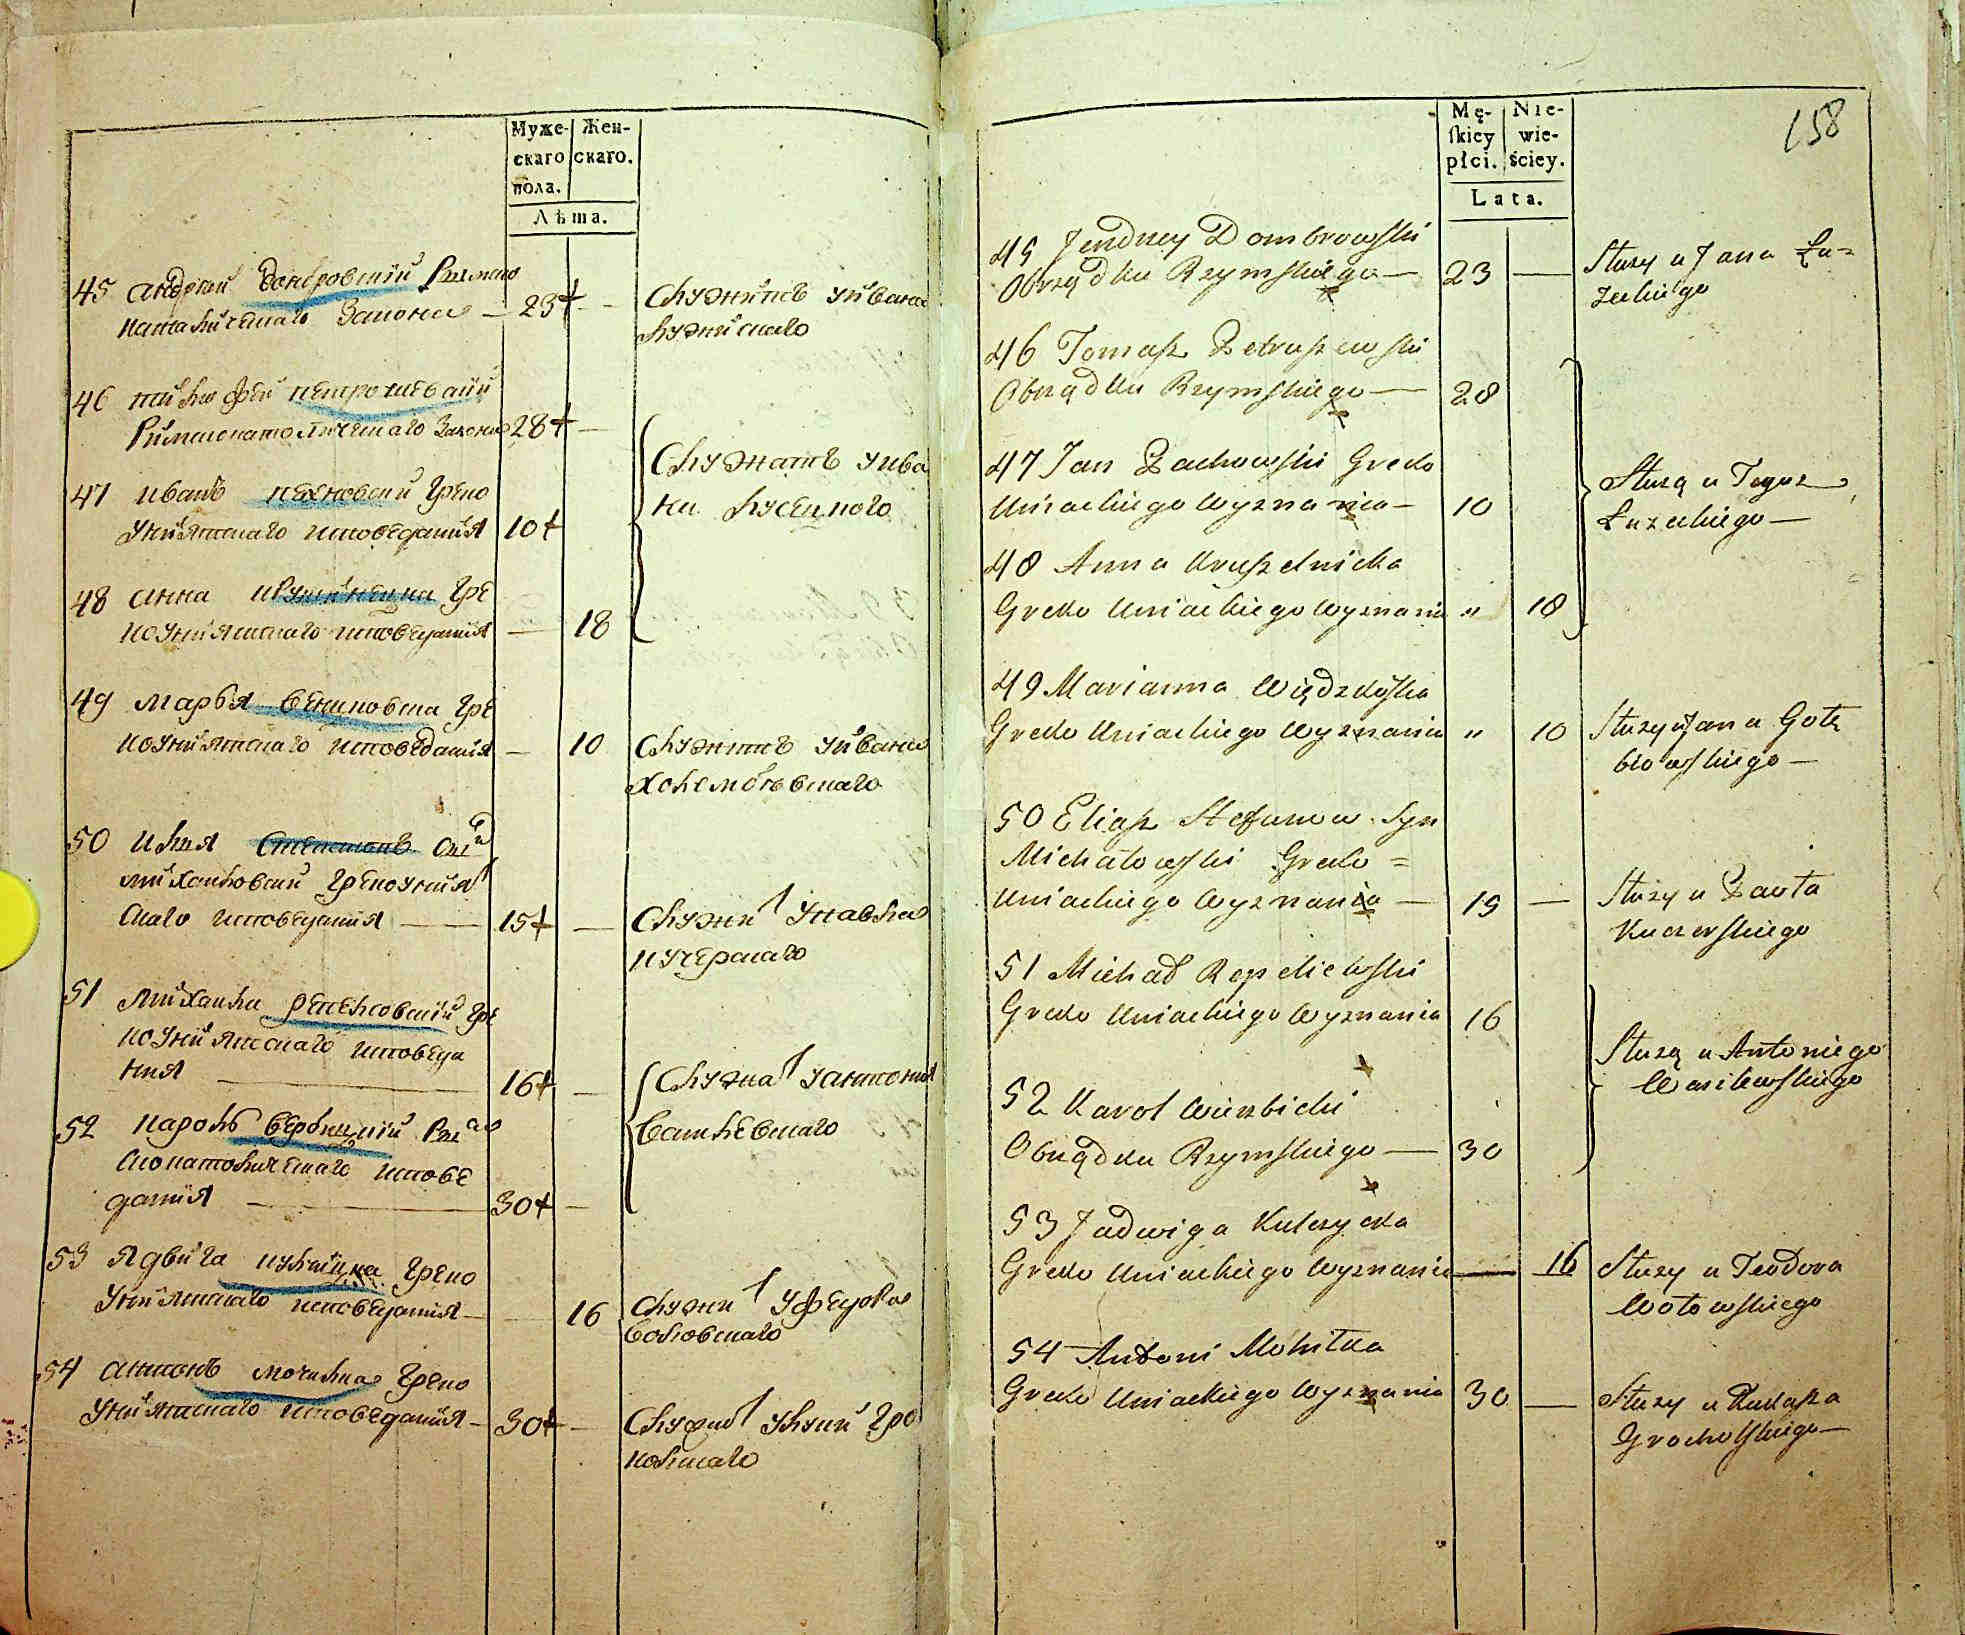 Муже- Жен-
скаго скаго.
пола.
Лѣта.
45 Андрей Домбровский Римско
католическаго Закона — 23 + — Служитъ уивана
лузинскаго
46 тимофей петрошевский
Римскокатолическаго Закона 28 + —
47 иванъ пахновский Греко
униятскаго исповедания 10 +
Служатъ уива
на
48 анна крушинецка Гре
коуниятскаго исповедания — 18
49 марья венцковска Гре
коуниятскаго исповедания — 10 Служитъ уивана
50 илия Степановъ Сынъ
михаиловский Грекоуният
скаго исповедания — 15 + — Служитъ упавла
кучерскаго
51 михаила репеловский Гре
коуниятскаго исповеда
ния — 16 + — Служатъ уантония
василевскаго
52 кароль вербицкий Рим
скокатолическаго испове
дания — 30 + —
53 Ядвига кульчицка Греко
униятскаго исповедания — 16 Служитъ уфедора
воловскаго
54 антонъ мочилка Греко
униятскаго исповедания — 30 + — Служитъ улуки Гро
хольскаго
158
Mę- Nie-
skiey wie-
płci. ściey.
Lata.
45 Jendrzey Dombrowski
Obrządku Rzymskiego — 23 — Służy u Jana Łu-
zeckiego
46 Tomasz Petruszewski
Obrządku Rzymskiego — 28
47 Jan Pachowski Greko
Uniackiego Wyznania — 10
Służą u
Łuzeckiego —
48 Anna Kruszelnicka
Greko Uniackiego Wyznania " 18
49 Marianna
Greko Uniackiego Wyznania " 10 Służy u Jana Gołę
biowskiego —
50 Eliasz Stefanow Syn
Michałowski Greko =
Uniackiego Wyznania — 15 — Służy u Pawła
Kuczerskiego
51 Michał Repelewski
Greko Uniackiego Wyznania 16
Służą u Antoniego
Wasilewskiego
52 Karol Wierzbicki
Obrządku Rzymskiego — 30
53 Jadwiga Kulczycka
Greko Uniackiego Wyznania — 16 Służy u Teodora
Wołowskiego
54 Antoni
Greko Uniackiego Wyznania 30 — Służy u Łukasza
Grocholskiego —